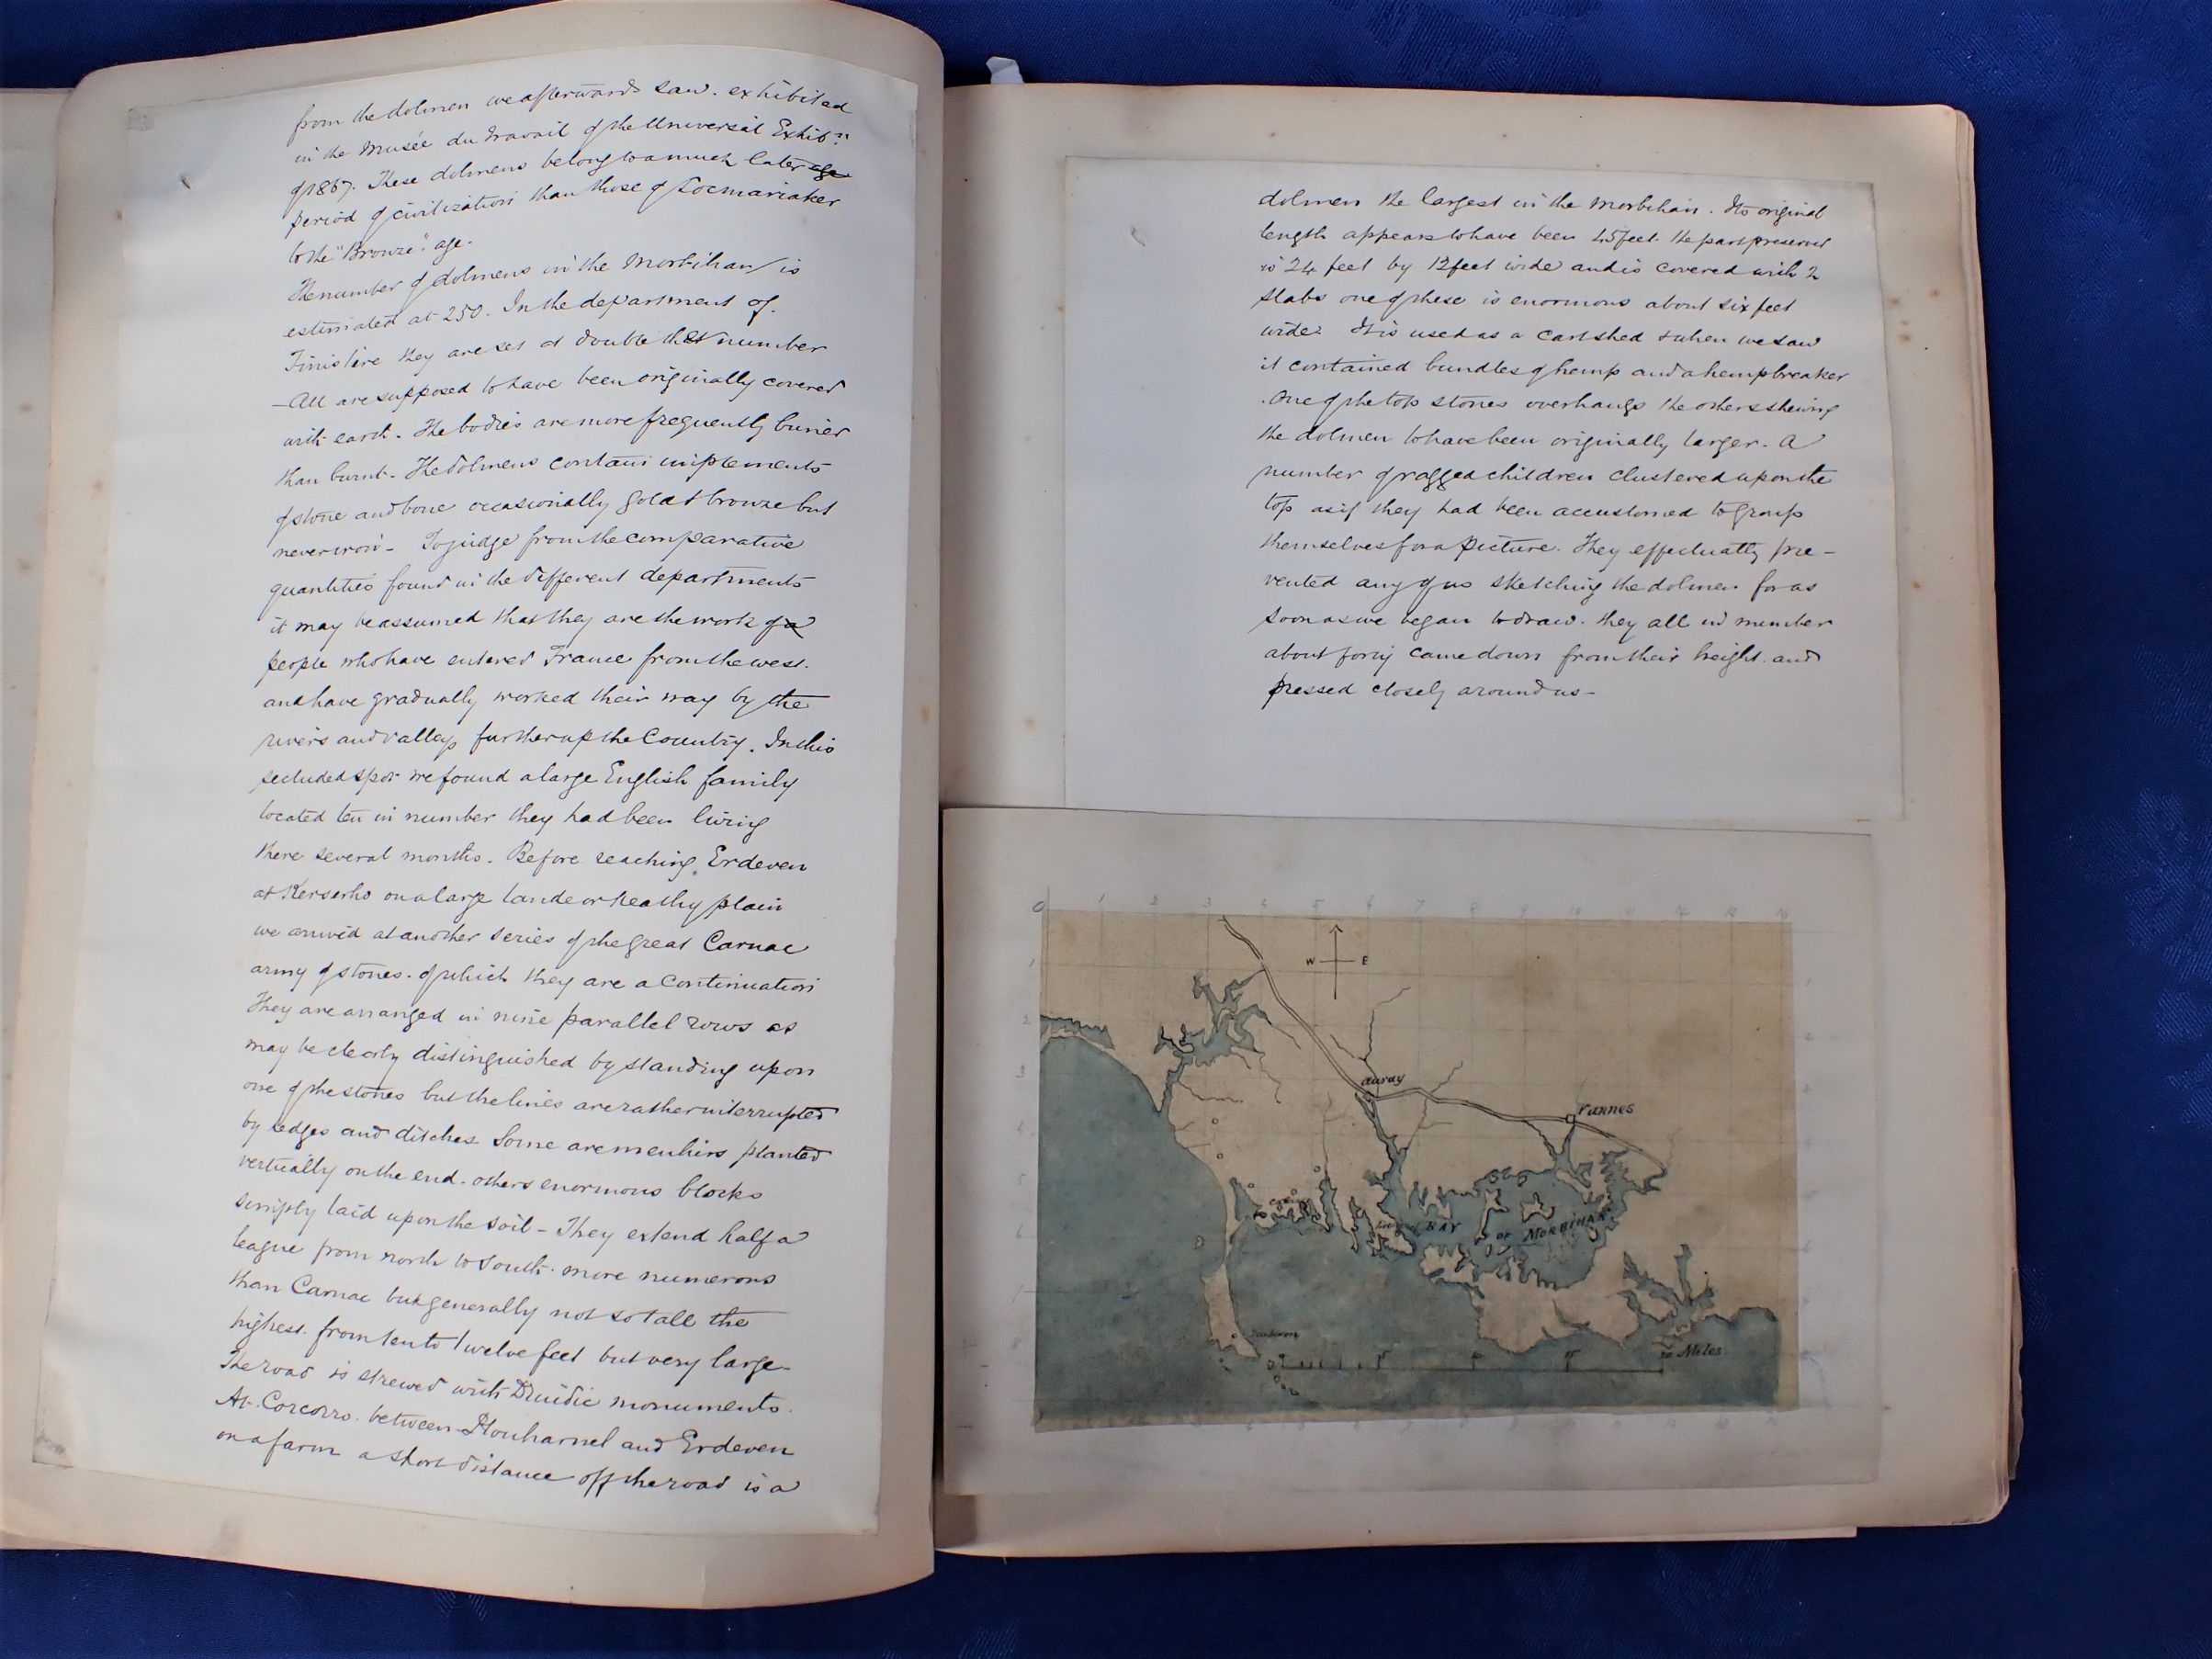 from the dolmen we afterwards saw. exhibited
in the Musée du Travail of the Universal Exhibn.
of 1867. These dolmens belong to a much later age
period of civilization than those of Locmariaker
to the "Bronze" age.
The number of dolmens in the Morbihan is
estimated at 250. In the department of.
Finistère they are set at double that number
– All are supposed to have been originally covered
with earth. The bodies are more frequently buried
than burnt. The dolmens contain implements
of stone and bone occasionally gold & bronze but
never iron – To judge from the comparative
quantities found in the different departments
it may be assumed that they are the work of a
people who have entered France from the west.
and have gradually worked their way by the
rivers and valleys further up the Country. In this
secluded spot we found a large English family
located ten in number they had been living
there several months. Before reaching Erdeven
at Kerserho on a large lande or heathy plain
we arrived at another series of the great Carnac
army of stones. of which they are a continuation
They are arranged in nine parallel rows as
may be clearly distinguished by standing upon
one of the stones but the lines are rather interrupted
by hedges and ditches Some are menhirs planted
vertically on the end. others enormous blocks
simply laid upon the soil – They extend half a
league from north to south. more numerous
than Carnac but generally not so tall the
highest. from ten to twelve feet but very large –
The road is strewed with Druidic monuments.
At. Corcorro. between Plouharnel and Erdeven
on a farm a short distance off the road is a
dolmen the largest in the Morbihan. Its original
length appears to have been 45 feet. the part preserved
is 24 feet by 12 feet wide and is covered with 2
slabs one of these is enormous about six feet
wide. It is used as a cart shed & when we saw
it contained bundles of hemp and a hemp breaker
. One of the top stones overhangs the others shewing
the dolmen to have been originally larger. A
number of ragged children clustered upon the
top as if they had been accustomed to group
themselves for a picture. They effectually pre-
vented any of us sketching the dolmen for as
soon as we began to draw. they all in number
about forty came down from their height. and
pressed closely around us –
0 1 2 3 4 5 6 7 8 9 10 11 12 13 14
W E
Auray
Vannes
BAY OF MORBIHAN
Miles